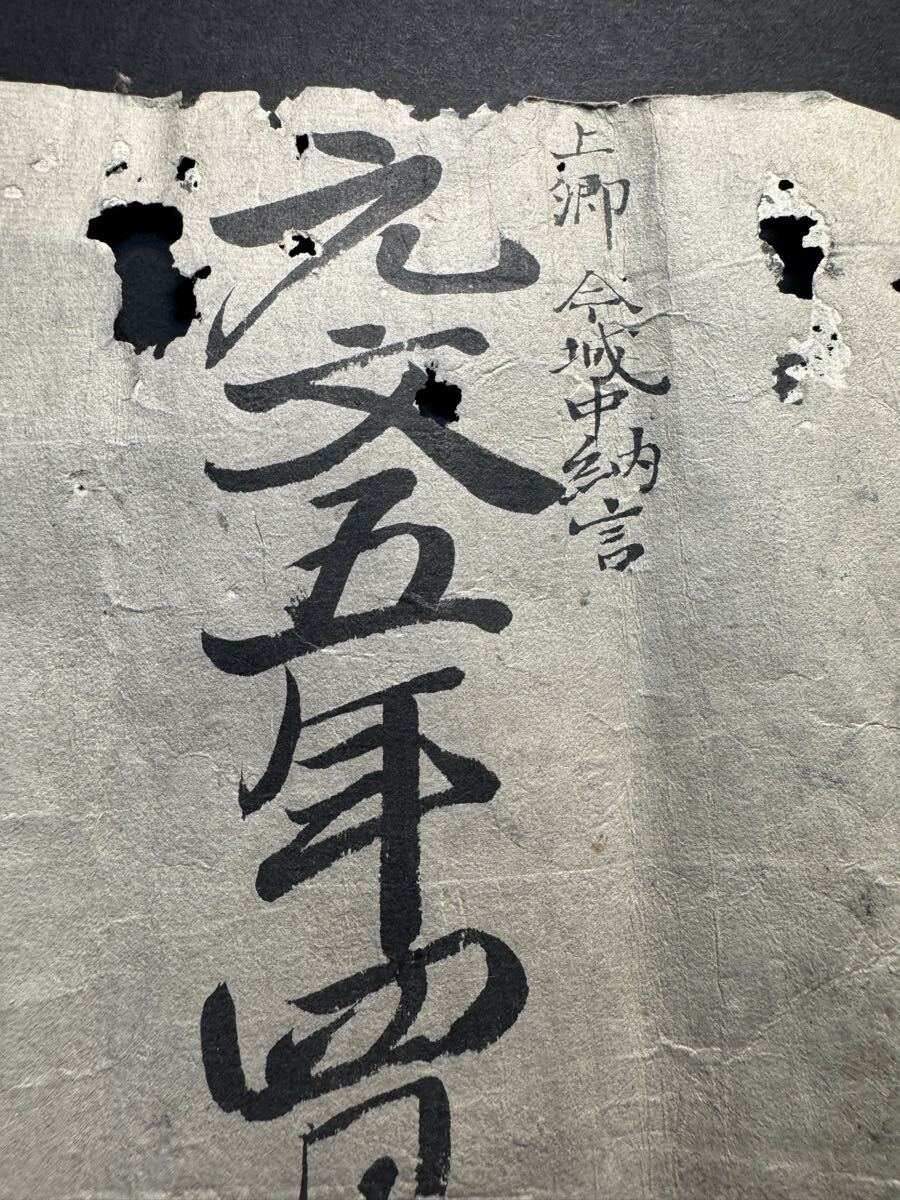 上卿 今城中納言
元文五年四月